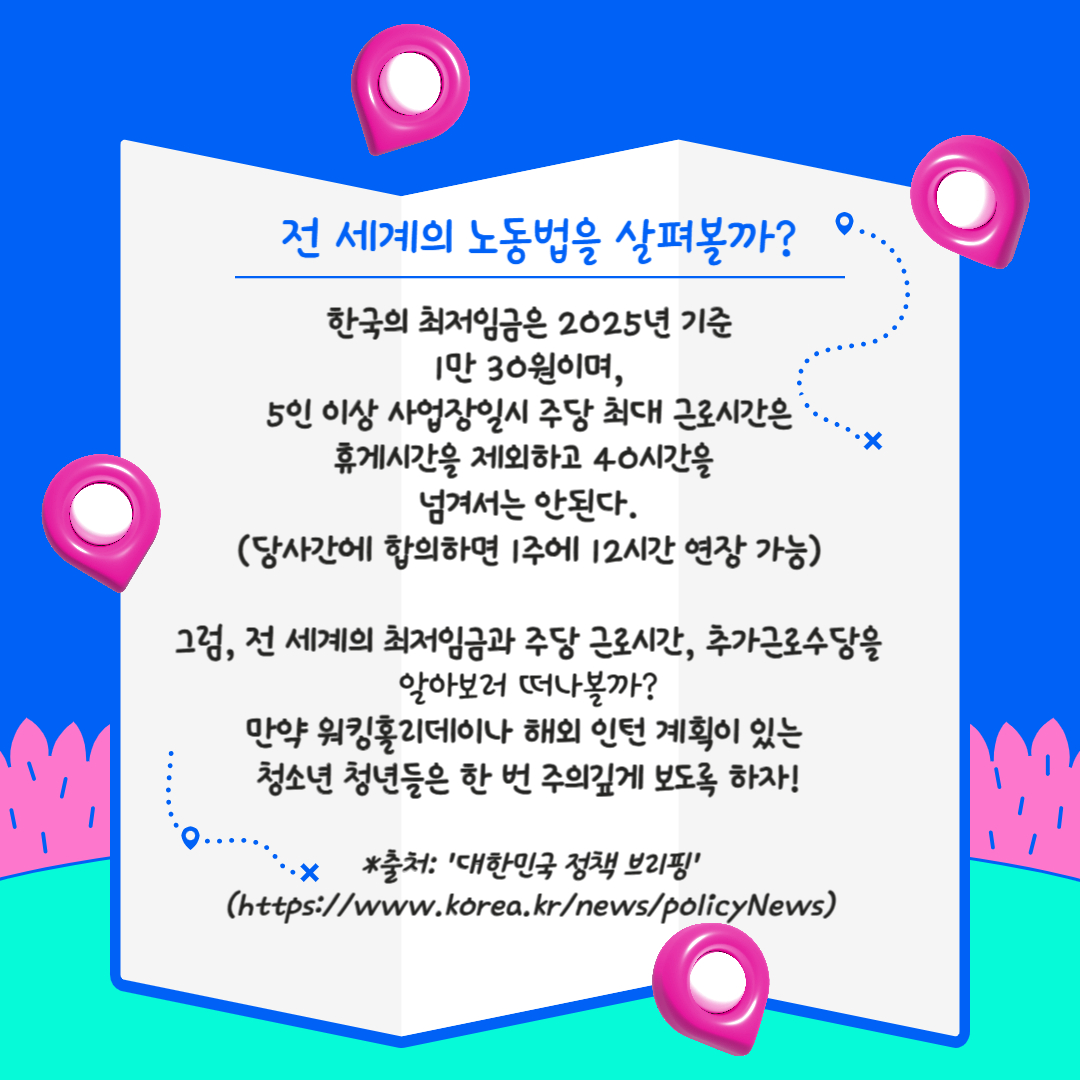 전 세계의 노동법을 살펴볼까?
한국의 최저임금은 2025년 기준
1만 30원이며,
5인 이상 사업장일시 주당 최대 근로시간은
휴게시간을 제외하고 40시간을
넘겨서는 안된다.
(당사간에 합의하면 1주에 12시간 연장 가능)
그럼, 전 세계의 최저임금과 주당 근로시간, 추가근로수당을
알아보러 떠나볼까?
만약 워킹홀리데이나 해외 인턴 계획이 있는
청소년 청년들은 한 번 주의깊게 보도록 하자!
*출처: '대한민국 정책 브리핑'
(https://www.korea.kr/news/policyNews)